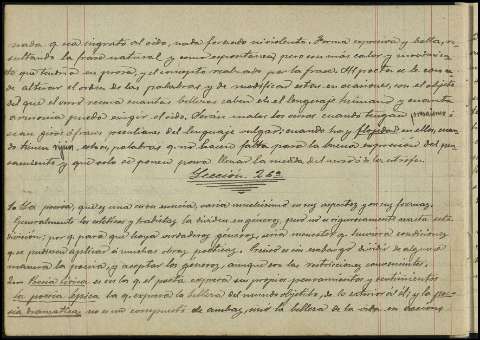 nada q sea ingrato al oido, nada forzado ni violento. Forma expresiva y bella, re-
sultando la frase natural y como espontánea pero con más calor y movimiento
to que tendría en prosa, y el concepto realzado por la frase. Al poeta se le conce-
de alterar el orden de las palabras y de modificar estas en ocasiones, con el objeto
de que el verso reuna cuantas bellezas caben en el lenguaje humano y cuanta
armonia pueda exigir el oido. Serán malos los versos cuando tengan prosaismo ó
sean giros ó frases peculiares del lenguaje vulgar; cuando hay flojedad en ellos, cuan-
do tienen ripios, estos, palabras q no hacen falta para la buena expresion del pen-
samiento y que solo se ponen para llenar la medida del verso ó de la estrofa.
Leccion 26ª
La poesia, que es una en su esencia, varia muchisimo en sus aspectos y en sus formas.
Generalmente los estéticos y hablistas la dividen en géneros, pero no es rigurosamente exacta esta
division; porq para que haya verdaderos géneros, seria menester q tuviera condiciones
que se pudieran aplicar á muchas obras poéticas. Preciso es sin embargo dividir de alguna
manera la poesia, y aceptar los géneros, aunque con las restricciones convenientes.
Poesia lírica es en la q el poeta expresa sus propios pensamientos y sentimientos
La poesía épica la q expresa la belleza del mundo objetivo, de lo exterior á él; y la poe-
sia dramatica, no es un compuesto de ambas, sino la belleza de la vida en accion